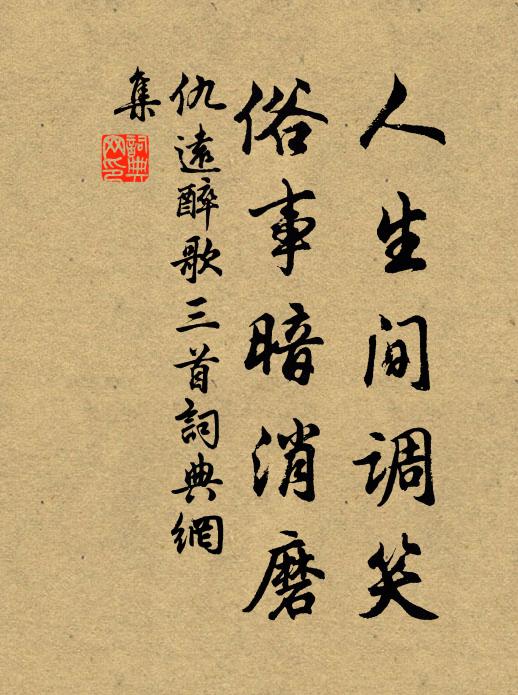 人生间调笑
俗事暗消磨
仇遠醉歌三首詞典網
集
詞典网印